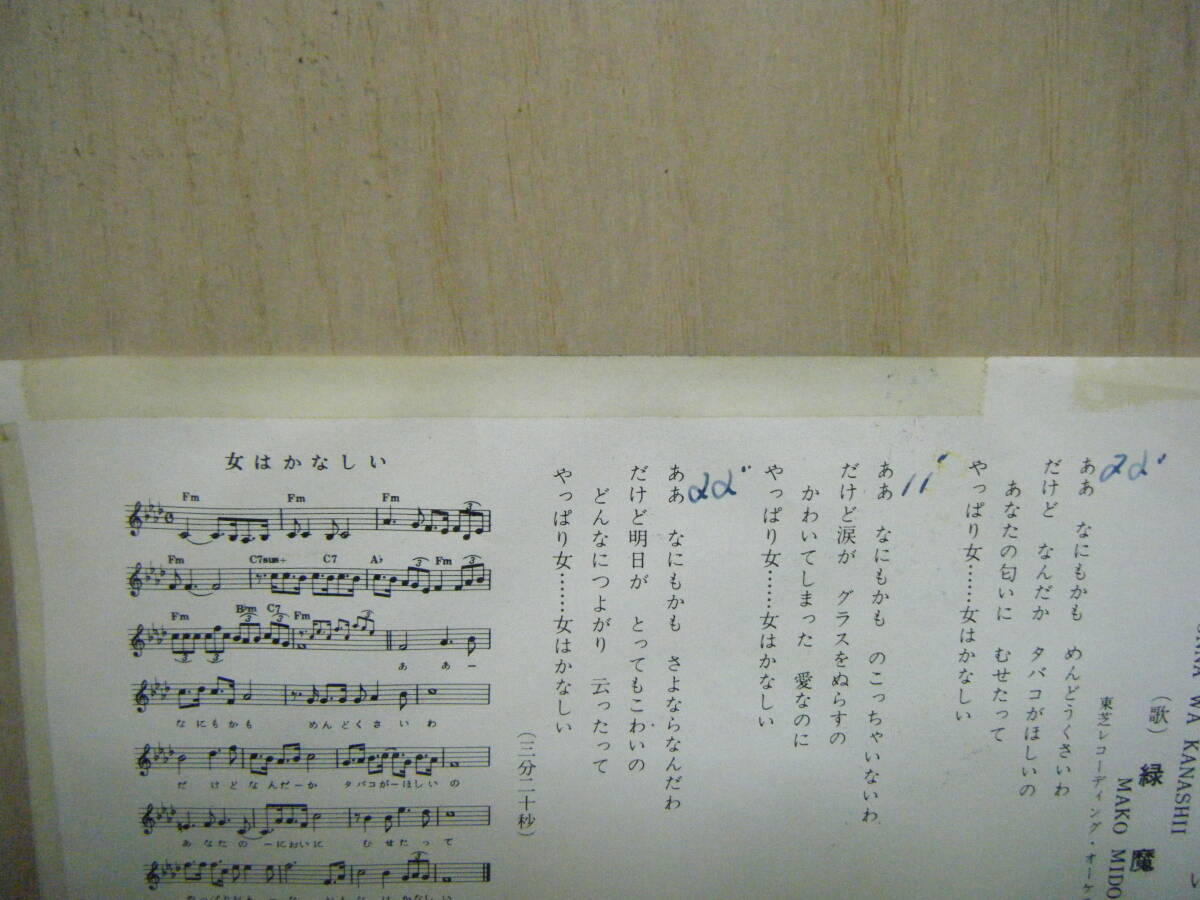 い
ONNA WA KANASHII
(歌) 緑魔
MAKO MIDO
東芝レコーディング・オーケ
22"
ああ なにもかも めんどうくさいわ
だけど なんだか タバコがほしいの
あなたの匂いに むせたって
やっぱり女……女はかなしい
11"
ああ なにもかも のこっちゃいないわ
だけど涙が グラスをぬらすの
かわいてしまった 愛なのに
やっぱり女……女はかなしい
22"
ああ なにもかも さよならなんだわ
だけど明日が とってもこわいの
どんなにつよがり 云ったって
やっぱり女……女はかなしい
(三分二十秒)
女はかなしい
Fm Fm Fm
Fm C7sus4 C7 A♭ Fm
Fm B♭m C7 Fm
ああー
なにもかも めんどくさいわ
だけどなんだーか タバコがーほしいの
あなたのーにおいに むせたって